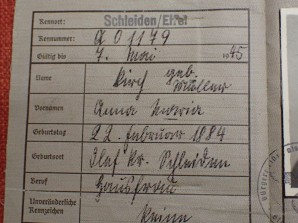 Kennort: Schleiden/Eifel
Kennummer: A 01179
Gültig bis 7. Mai 1945
Name Kirch geb.
Müller
Vornamen Anna Maria
Geburtstag 22. Februar 1884
Geburtsort Kr. Schleiden
Beruf Hausfrau
Unveränderliche
Kennzeichen Keine